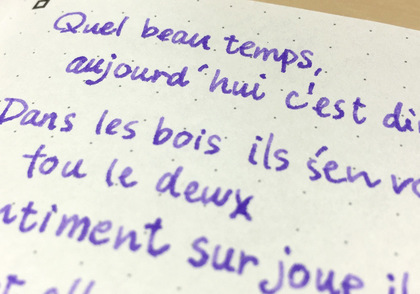 Quel beau temps,
aujourd'hui c'est
Dans les bois ils s'en
tou le deux
sur joue